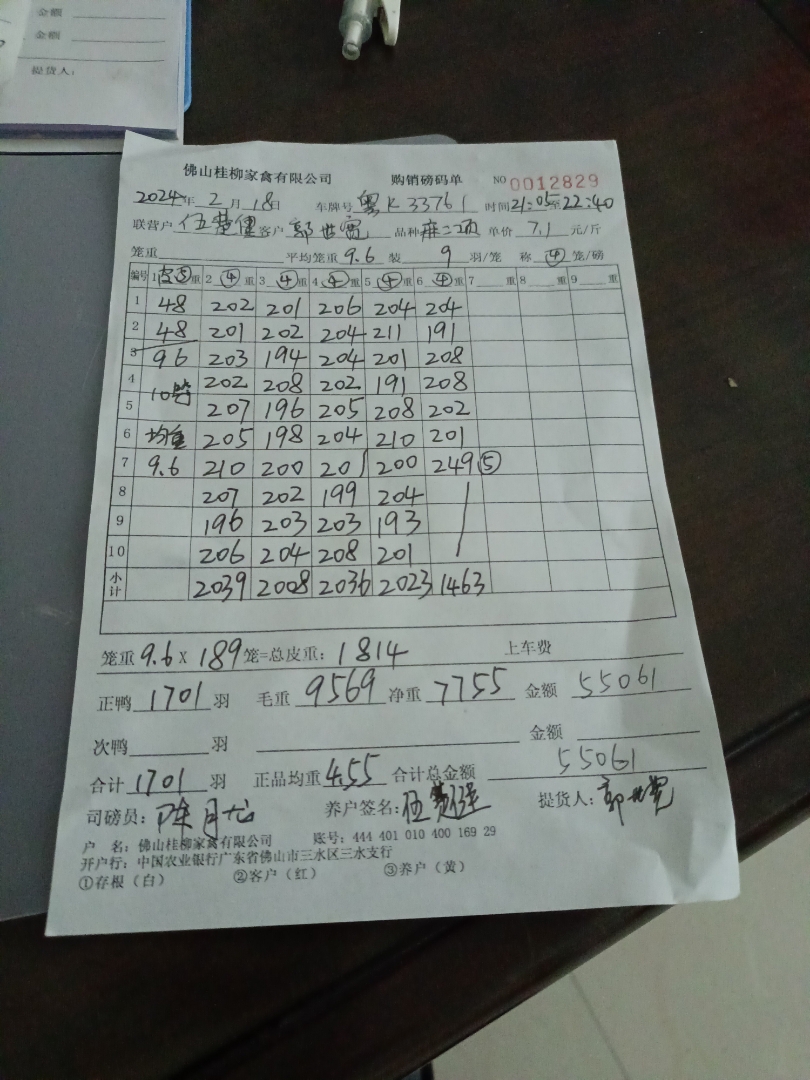 金额
金额
提货人:
佛山桂柳家禽有限公司 购销磅码单 NO 0012829
2024年 2月 18日 车牌号 粤K33761 时间 21:05至22:40
联营户 客户 郭世宽 品种 麻二项 单价 7.1 元/斤
笼重 平均笼重 9.6 装 9 羽/笼 称 ④ 笼/磅
编号 1 皮⑤重 2 ④重 3 ④重 4 ④重 5 ④重 6 ④重 7 重 8 重 9 重
1 48 202 201 206 204 204
2 48 201 202 204 211 191
3 96 203 194 204 201 208
4 10笼 202 208 202 191 208
5 207 196 205 208 202
6 均重 205 198 204 210 201
7 9.6 210 200 201 200 249⑤
8 207 202 199 204
9 196 203 203 193
10 206 204 208 201
小计 2039 2008 2036 2023 1463
笼重 9.6 X 189 笼=总皮重: 1814 上车费
正鸭 1701 羽 毛重 9569 净重 7755 金额 55061
次鸭 羽 金额
合计 1701 羽 正品均重 4.55 合计总金额 55061
司磅员: 陈月龙 养户签名: 提货人: 郭世宽
户 名: 佛山桂柳家禽有限公司 账号: 444 401 010 400 169 29
开户行: 中国农业银行广东省佛山市三水区三水支行
①存根(白) ②客户(红) ③养户(黄)